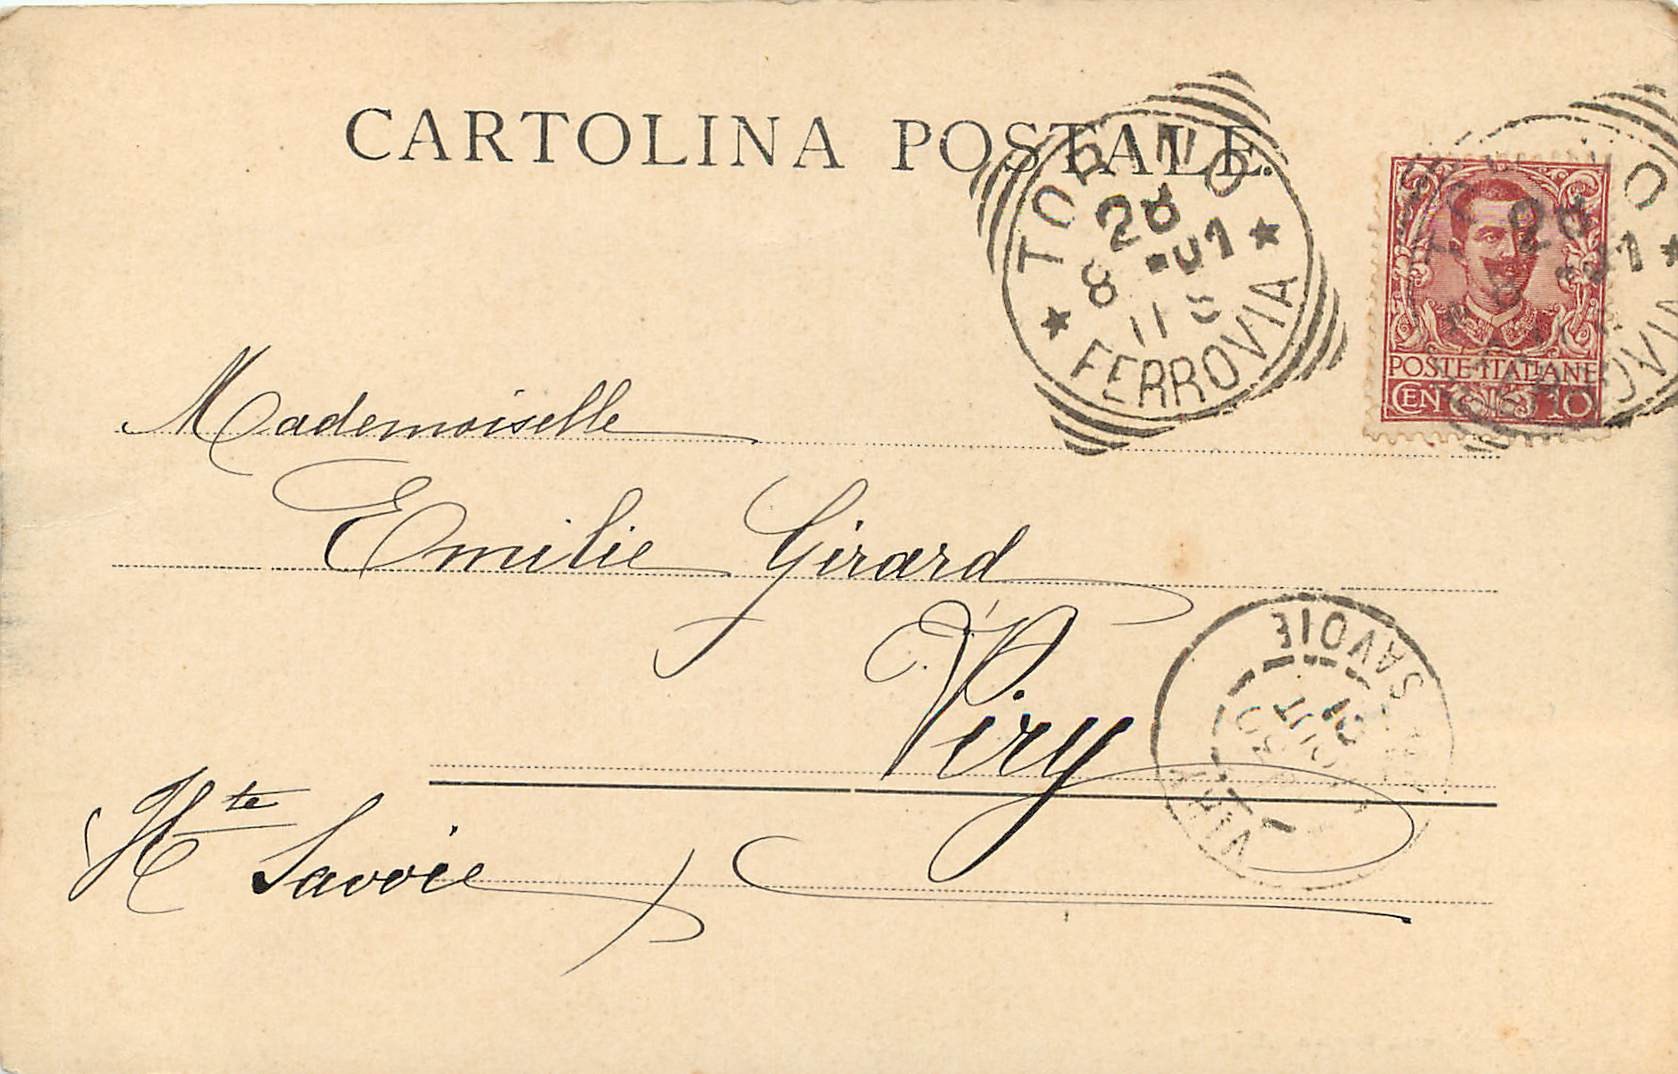 CARTOLINA POSTALE.
TORINO
28
8 - 01
11 S
FERROVIA
POSTE ITALIANE
CEN 10
Mademoiselle
Emilie Girard
Viry
Hte Savoie
VIRY
AOUT
01
SAVOIE